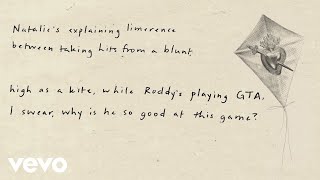 Natalie's explaining limerence
between taking hits from a blunt,
high as a kite, while Roddy's playing GTA,
I swear, why is he so good at this game?
vevo